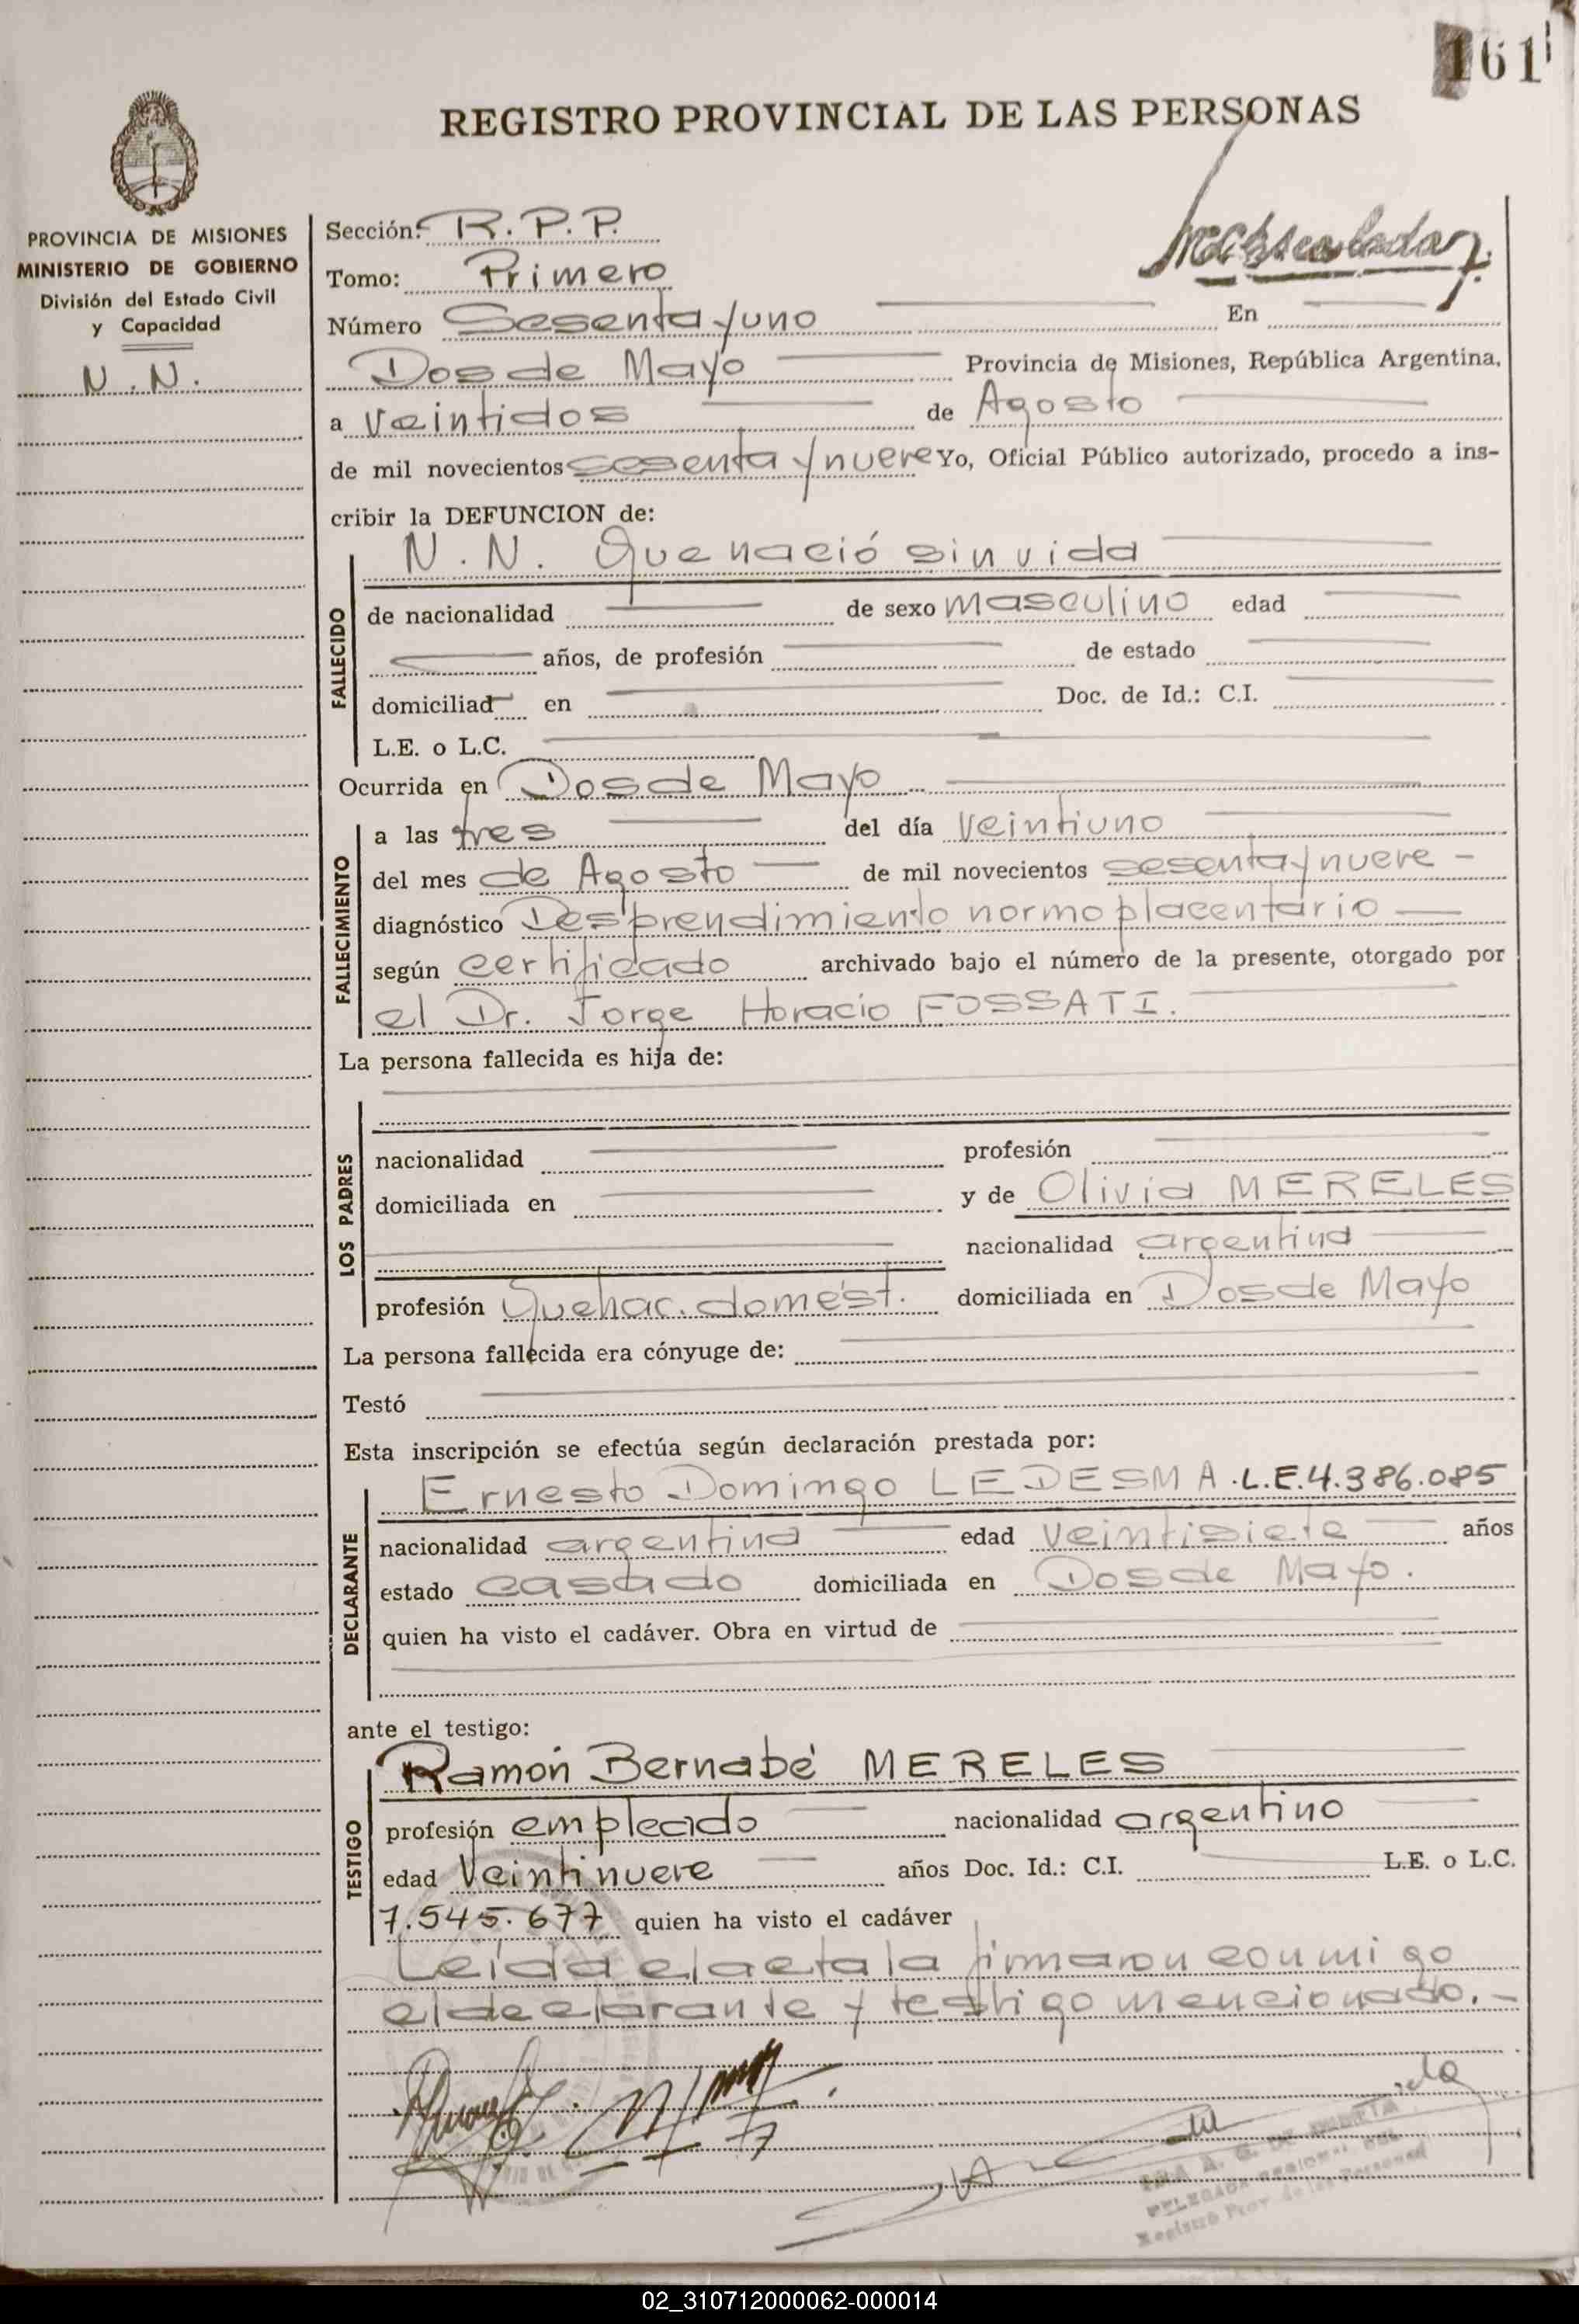 161
REGISTRO PROVINCIAL DE LAS PERSONAS
PROVINCIA DE MISIONES
MINISTERIO DE GOBIERNO
División del Estado Civil
y Capacidad
N.N.
Sección: R.P.P.
Tomo: Primero
Número Sesenta y uno En
Dos de Mayo Provincia de Misiones, República Argentina,
a veintidos de Agosto
de mil novecientos sesenta y nueve Yo, Oficial Público autorizado, procedo a ins-
cribir la DEFUNCION de:
N.N. Que nació sin vida
FALLECIDO
de nacionalidad de sexo masculino edad
años, de profesión de estado
domiciliad en Doc. de Id.: C.I.
L.E. o L.C.
Ocurrida en Dos de Mayo
FALLECIMIENTO
a las tres del día veintiuno
del mes de Agosto de mil novecientos sesenta y nueve
diagnóstico Desprendimiento normoplacentario
según certificado archivado bajo el número de la presente, otorgado por
el Dr. Jorge Horacio FOSSATI.
La persona fallecida es hija de:
LOS PADRES
nacionalidad profesión
domiciliada en y de Olivia MERELES
nacionalidad argentina
profesión Quehac. domést. domiciliada en Dos de Mayo
La persona fallecida era cónyuge de:
Testó
Esta inscripción se efectúa según declaración prestada por:
Ernesto Domingo LEDESMA.L.E.4.386.085
DECLARANTE
nacionalidad argentina edad veintisiete años
estado casado domiciliada en Dos de Mayo.
quien ha visto el cadáver. Obra en virtud de
ante el testigo:
Ramón Bernabé MERELES
TESTIGO
profesión empleado nacionalidad argentino
edad Veintinueve años Doc. Id.: C.I. L.E. o L.C.
7.545.677 quien ha visto el cadáver
Leída el acta la firmaron conmigo
el declarante y testigo mencionado.-
Registro Prov. de las Personas
02_310712000062-000014